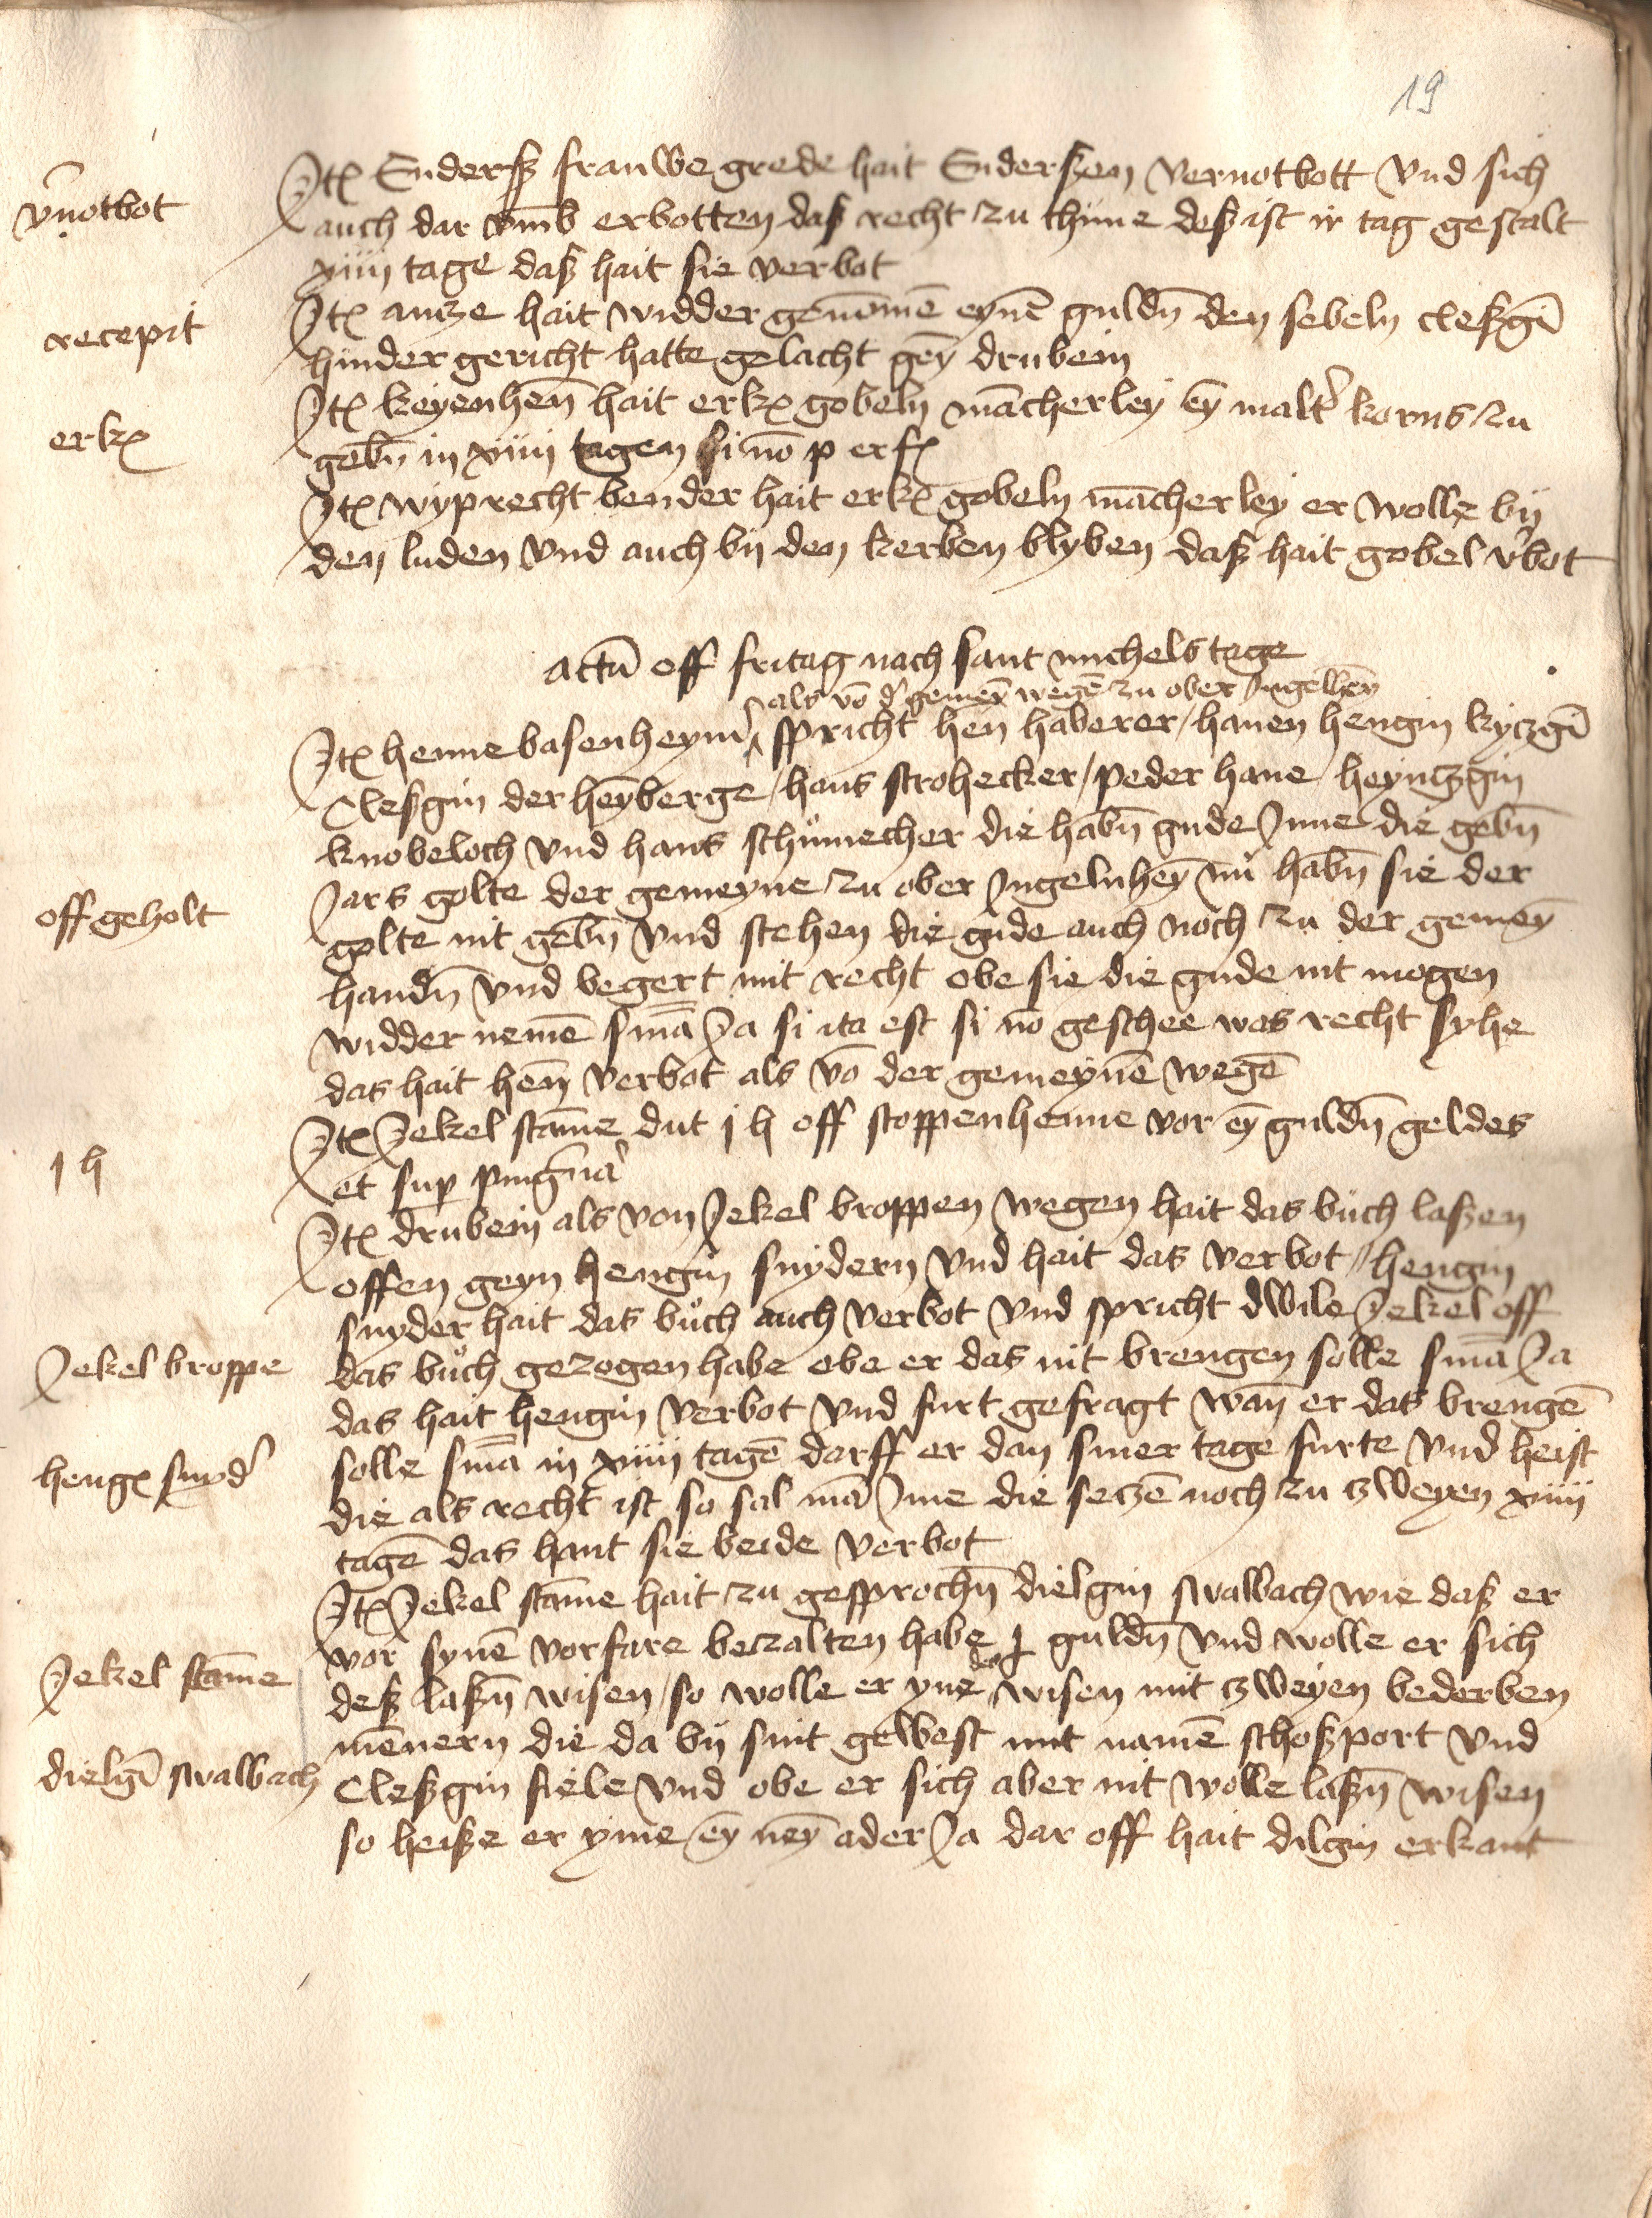 19
v̄notbot
Itꝫ Enderſz frauwe grede hait Enderſzen vernotbott vnd sich
auch dar vm̄b erbotten daſz recht zu thūne deſz ist ir tag gestalt
xiiii tage daſz hait sie verbot
recepit
Itꝫ antze hait widder genōmē eynē guldn̄ den sebeln cleſzgī
hinder gericht hatte gelacht gēy drubein
erkꝫ
Itꝫ keyenhen̄ hait erkꝫ gobeln mācherley eȳ malt' korns zu
gebn̄ in xiiii tagen si nō p erfꝫ
Itꝫ wyprecht bender hait erkꝫ gobeln mācherley er wolle by
den luden vnd auch by den kerben blyben daſz hait gobel v'bot
actū off fritag nach sant michels tage
als vō d' gemeȳ wegē zu ober Ingelheȳ
Itꝫ henne basenheym' spricht hen haberer / hanen hengin kyczgī
Cleſzgin der heyberge / hans strohecker / peder hane / heyntzgin
knobeloch vnd hans schůmecher die habn̄ gude Inne die gebn̄
off geholt
Jars golte der gemeyne zu ober Ingelnheȳ nů habn̄ sie der
golte nit gebn̄ vnd stehen die gude auch noch zu der gemeȳ
handn̄ vnd begert mit recht obe sie die gude nit mogen
widder nemē smā Ja si ita est si nō geschee was recht syhe
das hait hen̄ verbot als vō der gemeynē wegē
j h
Itꝫ Jekel stāme dut j h off stoppenhenne vor eȳ guldn̄ geldes
et sup pinḡna
Itꝫ drubein als von Jekel broppen wegen hait das bůch laſzen
offen geyn hengin snydern vnd hait das verbot / hengin
snyder hait das bůch auch verbot vnd spricht dwile Jekel off
Jekel broppe
das bůch gezogen habe obe er das nit brengen solle smā Ja
das hait hengin verbot vnd furt gefragt wan̄ er das brengē
hengꝫ snyd'
solle smā in xiiii tagē darff er dan siner tage furte vnd heist
die als recht ist so sal mā Ime die setzē noch zu zweyen xiiii
tagē das hant sie beide verbot
Itꝫ Jekel stāme hait zu gesprochn̄ dielgin swalbach wie daſz er
vor synē vorfare betzalten habe j guldn̄ vnd wolle er sich
Jekel stāme
deſz laſzn̄ wisen / so wolle er yne des wisen mit zweyen bederben
mēnern die da by sint gewest mit namē schoſzport vnd
dielgī swalbach
Cleſzgin siele vnd obe er sich aber nit wolle laſzn̄ wisen
so heiſze er yme eȳ neȳ ader Ja dar off hait dilgin erkant